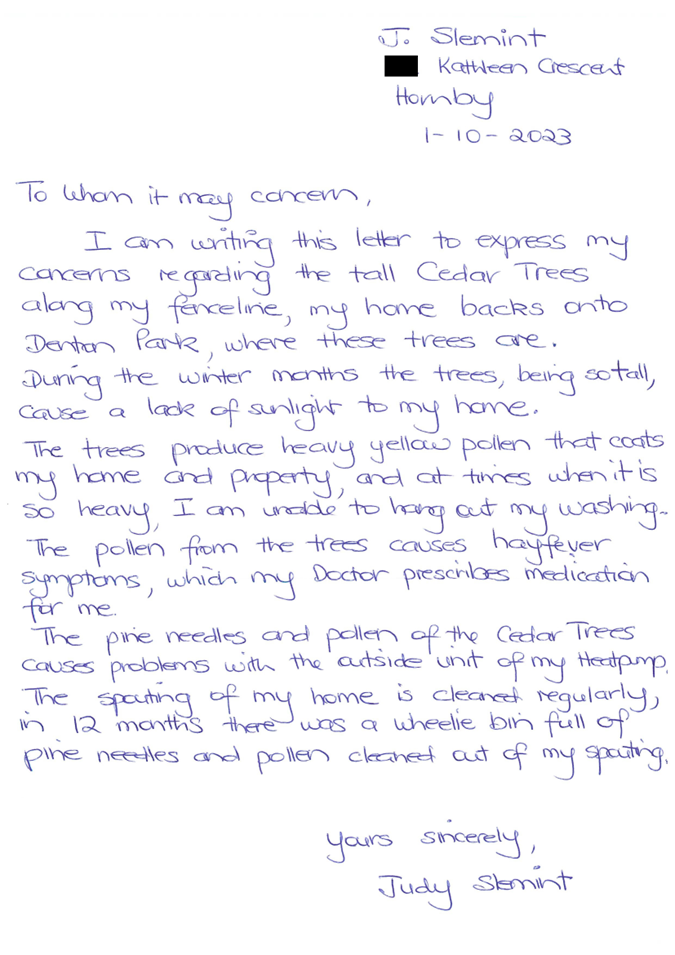 J. Slemint
Kathleen Crescent
Hornby
1-10-2023
To whom it may concern,
I am writing this letter to express my
concerns regarding the tall Cedar Trees
along my fenceline, my home backs onto
Denton Park, where these trees are.
During the winter months the trees, being so tall,
cause a lack of sunlight to my home.
The trees produce heavy yellow pollen that coats
my home and property, and at times when it is
so heavy, I am unable to hang out my washing.
The pollen from the trees causes hayfever
symptoms, which my Doctor prescribes medication
for me.
The pine needles and pollen of the Cedar Trees
causes problems with the outside unit of my Heatpump.
The spouting of my home is cleaned regularly,
in 12 months there was a wheelie bin full of
pine needles and pollen cleaned out of my spouting.
Yours sincerely,
Judy Slemint